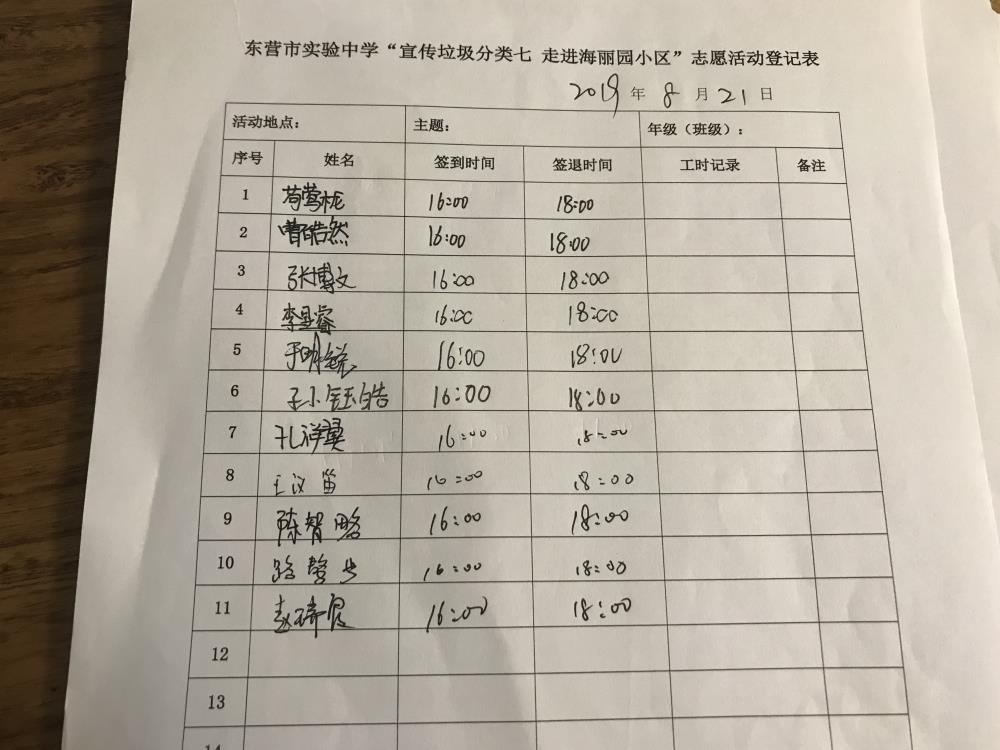 东营市实验中学“宣传垃圾分类七 走进海丽园小区”志愿活动登记表
2019 年 8 月 21 日
活动地点： 主题： 年级（班级）：
序号 姓名 签到时间 签退时间 工时记录 备注
1 16:00 18:00
2 曹皓然 16:00 18:00
3 张博文 16:00 18:00
4 李呈睿 16:00 18:00
5 16:00 18:00
6 孙钰皓 16:00 18:00
7 孔祥昊 16:00 18:00
8 王汉笛 16:00 18:00
9 陈智略 16:00 18:00
10 16:00 18:00
11 16:00 18:00
12
13
14